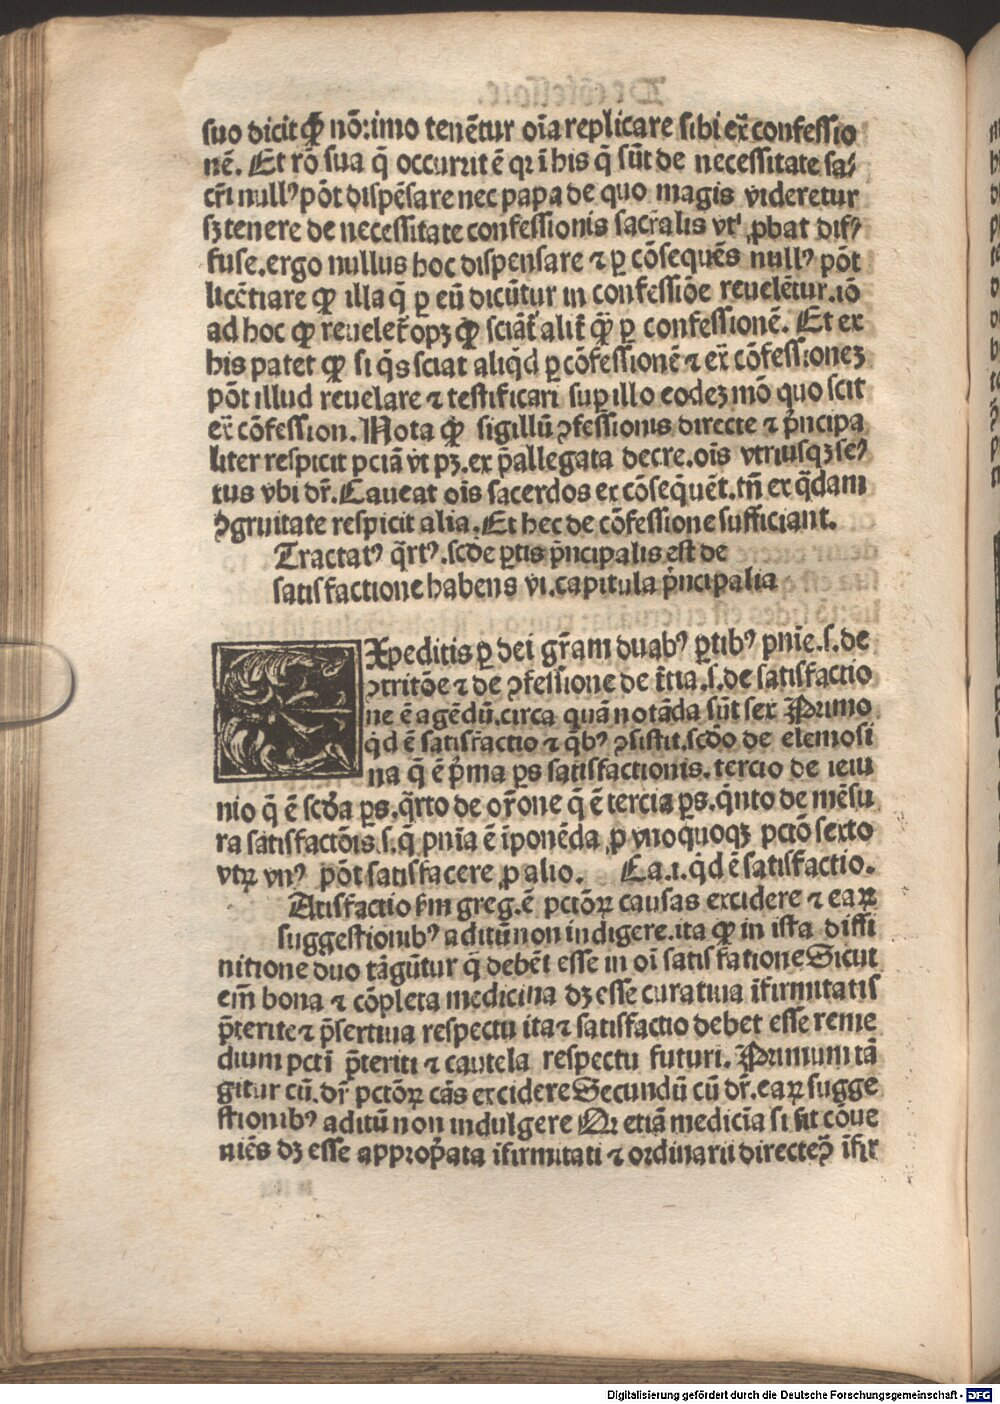 suo dicit ꝙ nō:imo tenētur oīa replicare sibi ex̄ confessio
nē. Et rō sua q̄ occurrit ē qꝛ ī his q̄ sūt de necessitate sa⸗
cr̄i nullꝰ pōt dispēsare nec papa de quo magis videretur
sꝫ tenere de necessitate confessionis sacr̄alis vt ꝓbat dif⸗
fuse.ergo nullus hoc dispensare ⁊ ꝑ cōsequēs nullꝰ pōt
licētiare ꝙ illa q̄ ꝑ eū dicūtur in confessiōe reuelētur.iō
ad hoc ꝙ reueleṫ opꝫ ꝙ sciāṫ aliṫ ꝙ̄ ꝑ confessionē. Et ex
his patet ꝙ si q̇s sciat aliq̇d ꝑ cōfessionē ⁊ ex̄ cōfessioneꝫ
pōt illud reuelare ⁊ testificari suꝑ illo eodeꝫ mō quo scit
ex̄ cōfession. Nota ꝙ sigillū ꝯfessionis directe ⁊ p̄ncipa
liter respicit pctā vt pꝫ.ex p̄allegata decre.oīs vtriusqꝫ se⸗
xus vbi dr̄.Caueat oīs sacerdos ex cōseq̄uēt.tn̄ ex q̄dam
ꝯgruitate respicit alia.Et hec de cōfessione sufficiant.
Tractatꝰ q̄rtꝰ.scde ꝑtis p̄ncipalis est de
satisfactione habens vi.capitula p̄ncipalia
EXpeditis ꝑ dei gr̄am duabꝰ ꝑtibꝰ pnīe.s.de
ꝯtritōe ⁊ de ꝯfessione de t̄tia.s.de satisfactio
ne ē agēdū.circa quā notāda sūt sex Primo
q̇d ē satisfactio ⁊ q̇bꝰ ꝯsistit.scdo de elemosi
na q̄ ē p̄ma ꝑs satisfactionis.tercio de ieiu
nio q̄ ē scda ꝑs.q̄rto de or̄one q̄ ē tercia ꝑs.q̇nto de mēsu
ra satisfactōis.s.q̄ pnīa ē īponēda ꝓ vnoquoqꝫ pctō sexto
vtꝝ vnꝰ pōt satisfacere ꝓ alio. Ca.i.q̇d ē satisfactio.
Atisfactio ẜm greg.ē pctōꝝ causas excidere ⁊ eaꝝ
suggestionibꝰ aditū non indigere.ita ꝙ in ista diffi
nitione duo tāgūtur q̄ debēt esse in oī satisfatione Sicut
em̄ bona ⁊ cōpleta medicina dꝫ esse curatiua īfirmitatis
p̄terite ⁊ p̄sertiua respectu ita ⁊ satisfactio debet esse reme
dium pcti p̄teriti ⁊ cautela respectu futuri. Primum tā
gitur cū.dr̄ pctōꝝ cās excidere Secundū cū dr̄.eaꝝ sugge
stionibꝰ aditū non indulgere Qꝛ etiā medicīa si sit cōue
niēs dꝫ esse appropͥata īfirmitati ⁊ ordinarii directeꝫ īfir